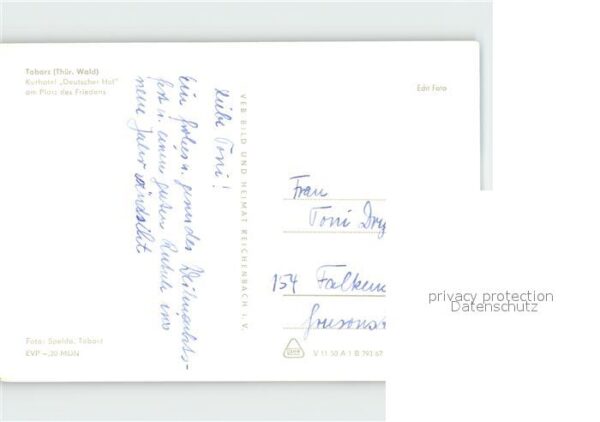 Tabarz (Thür. Wald)
Kurhotel „Deutscher Hof"
am Platz des Friedens
Echt Foto
Liebe Toni!
Ein frohes u. gesundes Weihnachts-
fest u. einen guten Rutsch ins
neue Jahr
VEB BILD UND HEIMAT REICHENBACH i. V.
Frau
Toni Dry
154 Falken
Foto: Spelda, Tabarz
EVP -,20 MDN
V 11 50 A 1 B 793/67
privacy protection
Datenschutz